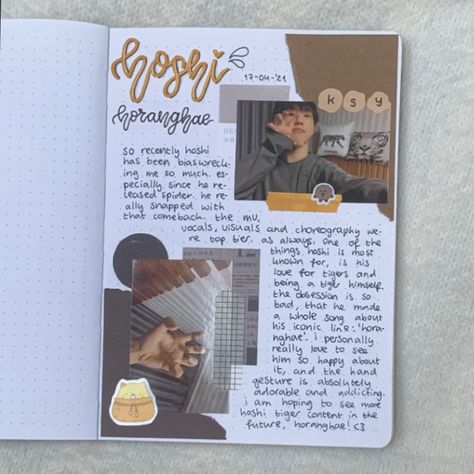 hoshi
17-04-'21
horanghae
k s y
so recently hoshi
has been biaswreck-
ing me so much. es-
pecially since he re-
leased spider. he re-
ally snapped with
that comeback. the mv,
vocals, visuals and choreography we-
re top tier. as always. one of the
things hoshi is most
known for, is his
love for tigers and
being a tiger himself.
the obsession is so
bad, that he made
a whole song about
his iconic line: 'hora-
nghae'. i personally
really love to see
him so happy about
it, and the hand
gesture is absolutely
adorable and addicting.
i am hoping to see more
hoshi tiger content in the
future, horanghae! <3